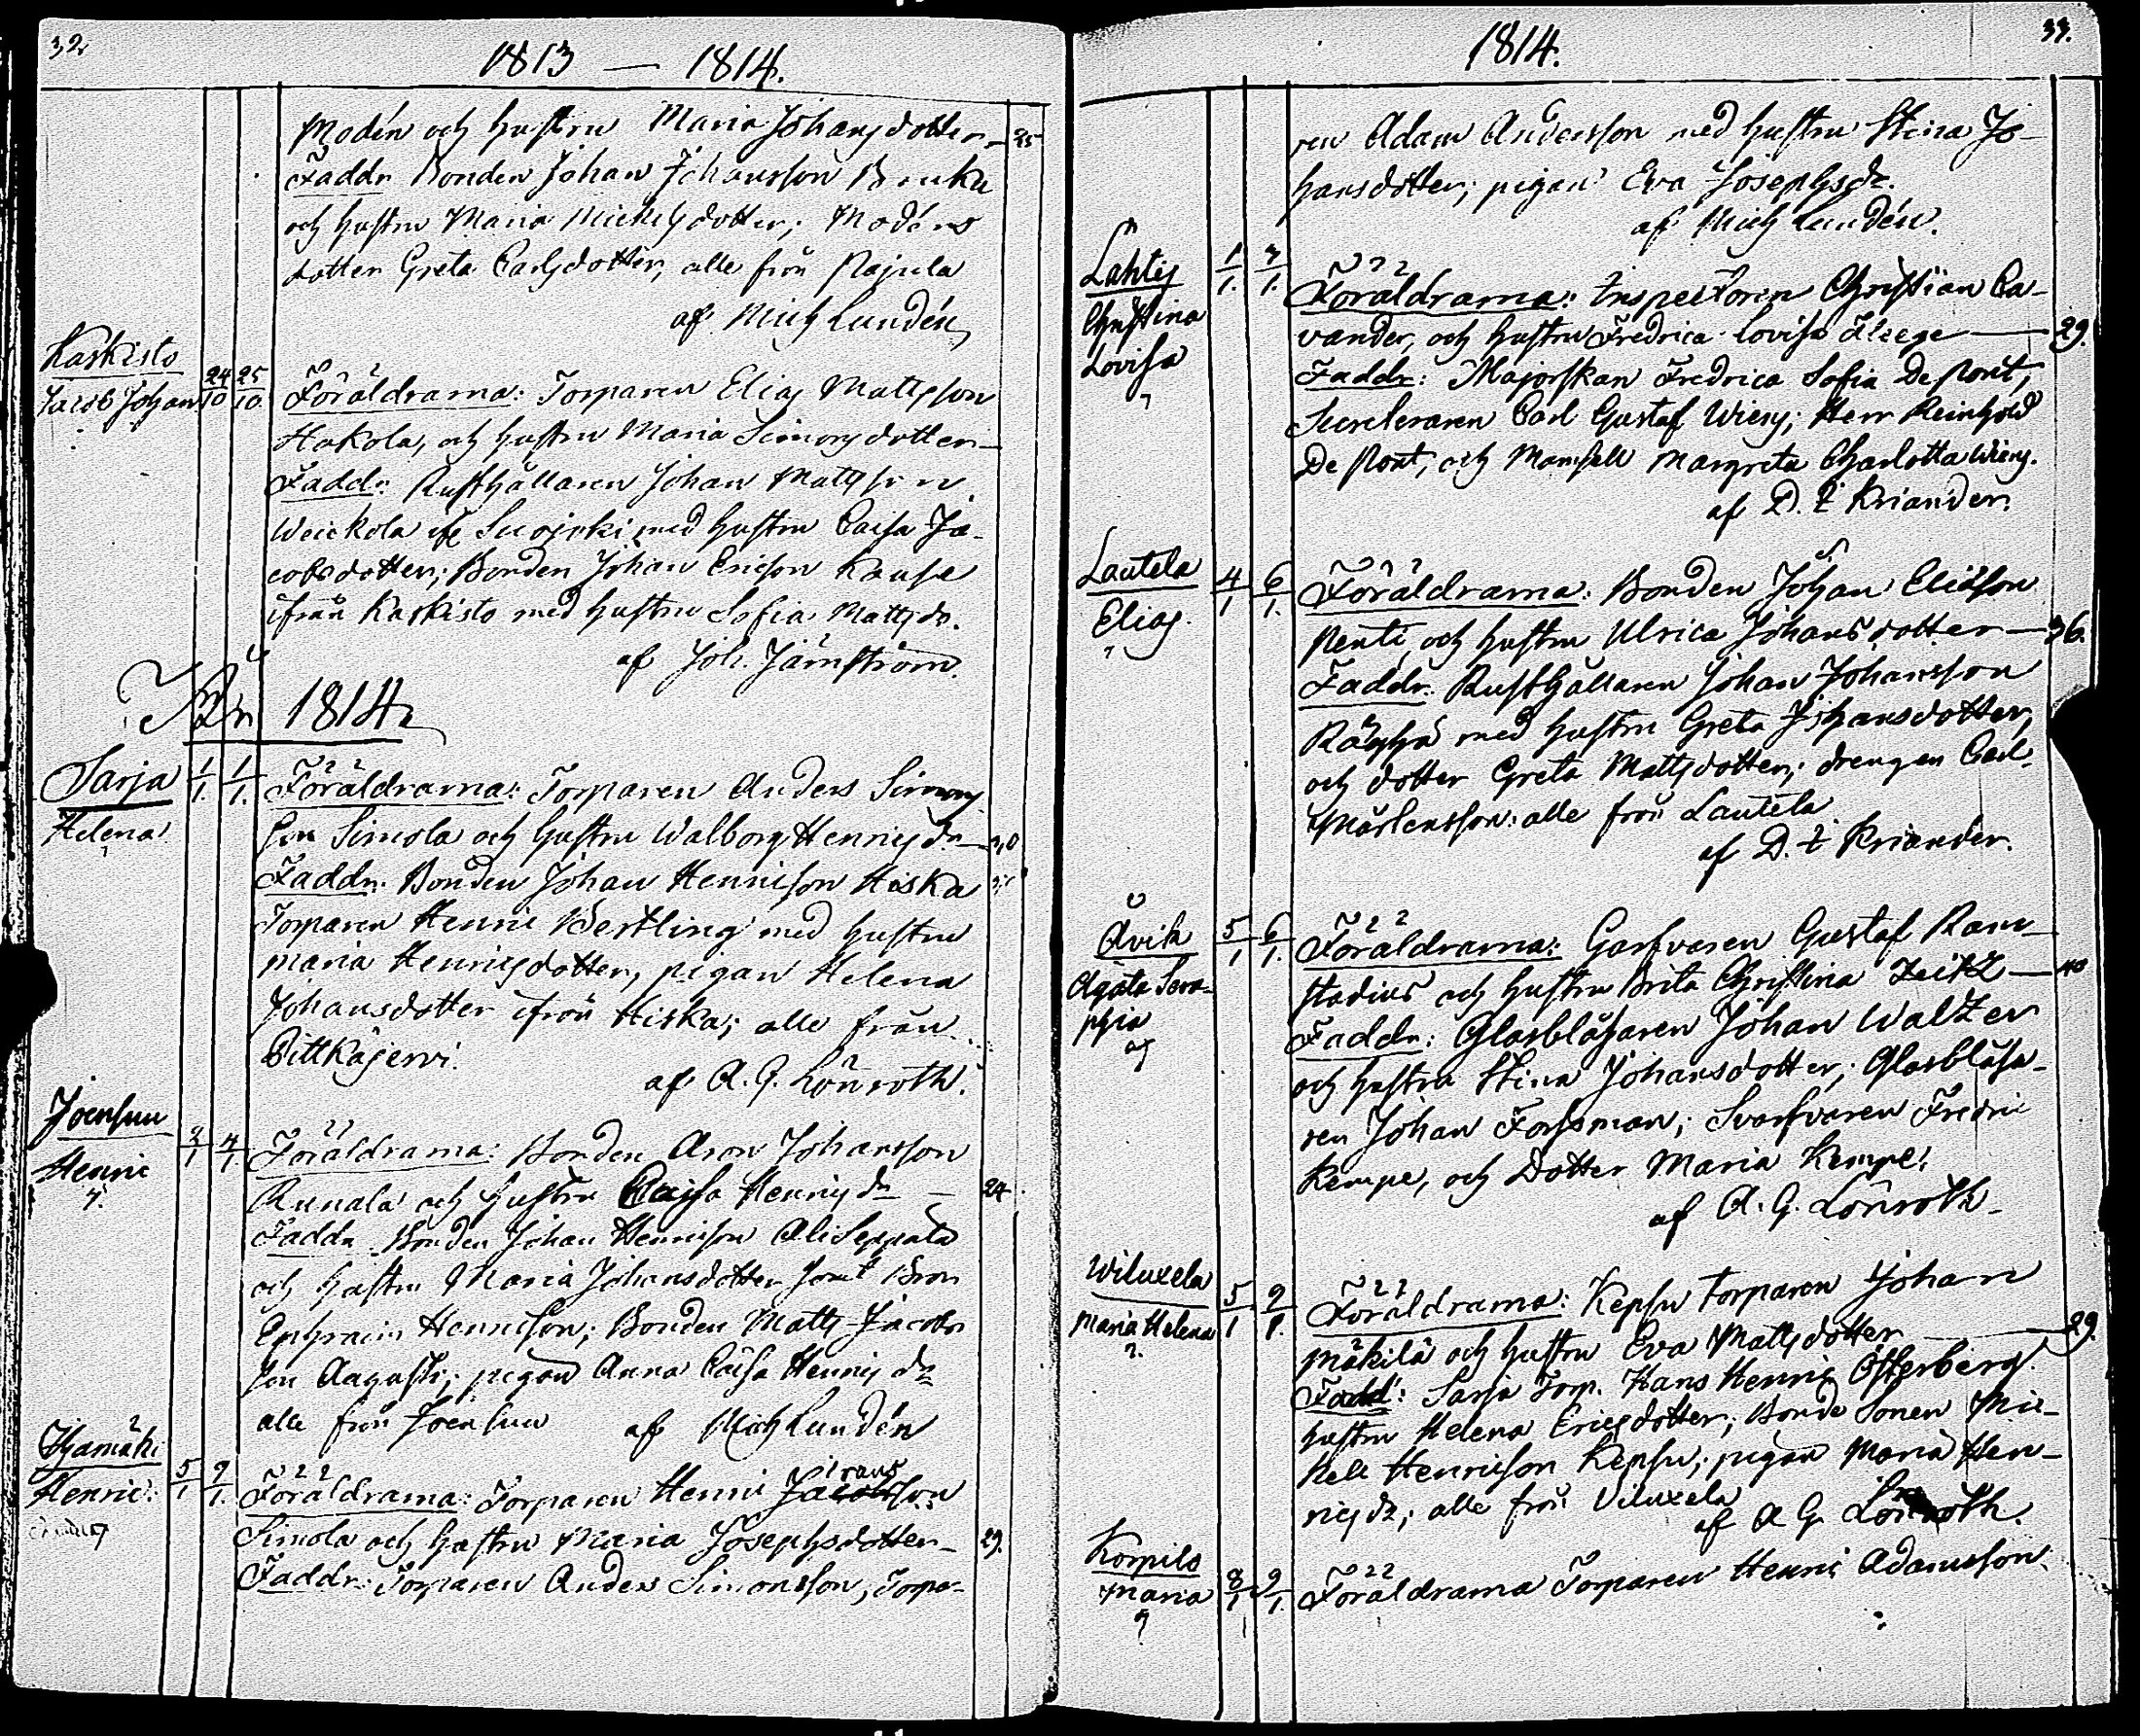 32
1813 — 1814.
Modén och hustru Maria Johansdotter 25
Faddr. Bonden Johan Johansson
och hustru Maria Michelsdotter; Modéns
dotter Greta Carlsdotter, alle från Pajula
af Mich Lundén
Kaskisto
Jacob Johan 24/10 25/10 Föräldrarna: Torparen Elias Mattsson
Hakola, och hustru Maria Simonsdotter —
Faddr: Rusthållaren Johan Mattsson
Weickola med hustru Caisa Ja-
cobsdotter; Bonden Johan Ericson Kause
ifrån Kaskisto med hustru Sofia Mattsdr.
af Joh. Järnström.
1814
Sarja 1/1. 1/1. Föräldrarna: Torparen Anders Simons
Helena son Simola och hustru Walborg Henricsdr — 30
Faddr. Bonden Johan Henricson Hiska
Torparen Henric Bertling med hustru
Maria Henricsdotter, pigan Helena
Johansdotter ifrån Hiska; alle från
Pittkäjervi.
af A. G. Lönroth.
Joensuu
Henric 2/1 4/1 Föräldrarna: Bonden Aron Johansson
Runala och hustru Caisa Henricsdr — 24
Faddr Bonden Johan Henricson Aliseppälä
och hustru Maria Johansdotter samt Bron
Ephraim Henricson; Bonden Matts Jacobs
son Aagusti; pigan Anna Caisa Henricsdr
alle från Joensuu af Mich Lundén
Hjamäki
Henric. 5/1 9/1. Föräldrarna: Torparen Henric Jacobsson
Simola och hustru Maria Josephsdotter — 29.
Faddr: Torparen Anders Simonsson, Torpa-
1814. 33.
ren Adam Andersson med hustru Stina Jo-
hansdotter; pigan Eva Josephsdr.
af Mich Lundén.
Lahtis 1/1. 3/1. Föräldrarna: Inspectoren Christian Ca-
Christina vander, och hustru Fredrica Lovisa Fleege — 29.
Lovisa Faddr: Majorskan Fredrica Sofia De Pont,
Secreteraren Carl Gustaf Wieng; Herr Reinhold
De Pont, och Mamsell Margreta Charlotta Wieng.
af D. E Kriander.
Lautela 4/1 6/1. Föräldrarna: Bonden Johan Eliasson
Elias. Penti, och hustru Ulrica Johansdotter — 36.
Faddr. Rusthållaren Johan Johansson
Räyhä med hustru Greta Johansdotter,
och dotter Greta Mattsdotter; drengen Carl
Mårtensson: alle från Lautela
af D. E Kriander.
Åvik 5/1 6/1. Föräldrarna: Garfvaren Gustaf Ram-
Agata Sera- stadius och hustru Brita Christina Zeitz — 40
phia Faddr: Glasblåsaren Johan Walzer
och hustru Stina Johansdotter; Glasblåsa-
ren Johan Forssman; Svarfvaren Fredric
Kempe, och Dotter Maria Kempe.
af A. G. Lönroth.
Wiluxela 5/1 9/1. Föräldrarna: Kepsu torparen Johan
Maria Helena Mäkilä och hustru Eva Mattsdotter — 29.
Fadd: Sarja Torp. Hans Henric Österberg
hustru Helena Ericsdotter; Bonde Sonen Mic-
kell Henricson Kepsu; pigan Maria Hen-
ricsdr; alle från Viluxela
af A G Lönroth.
Korpilo
Maria 8/1 9/1. Föräldrarna Torparen Henric Adamsson